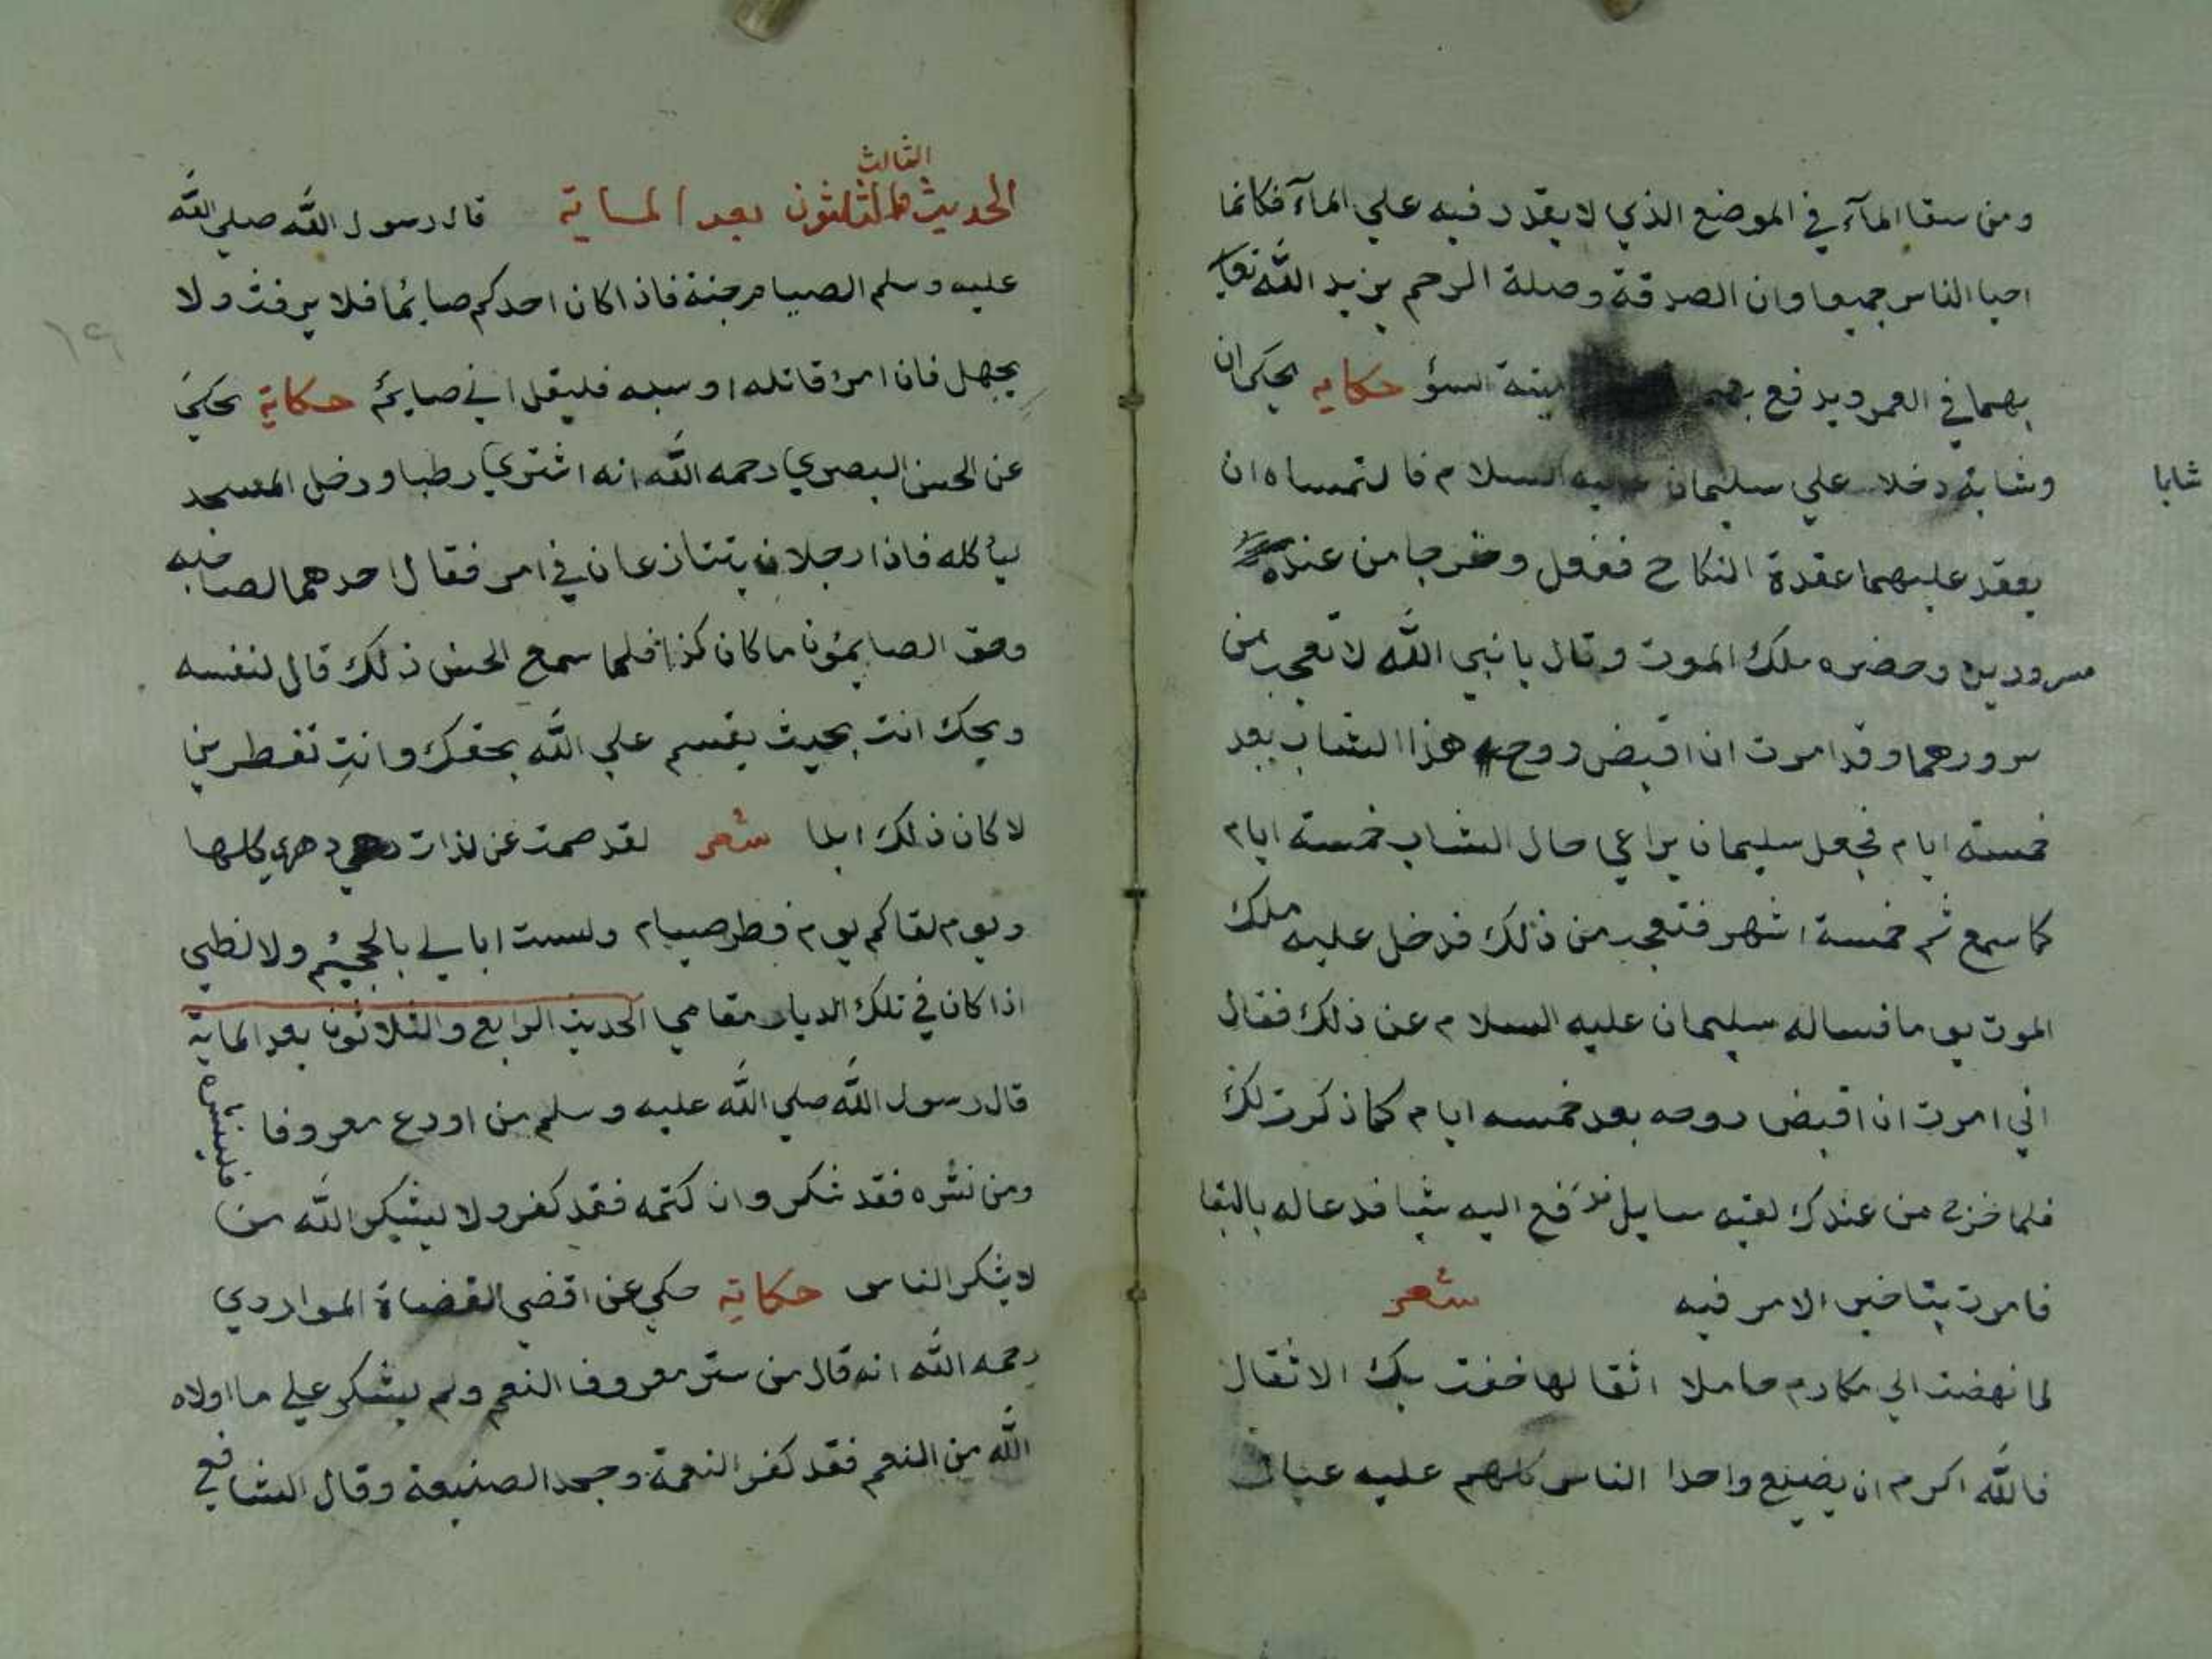 ومن سقا المآء في الموضع الذي لا يقدر فيه علي المآء فكانما
احيا الناس جميعا وان الصدقة وصلة الرحم يزيد الله تعا
بهما في العمر ويدفع ميتة السؤ حكايه يحكى ان
شابا
وشابة دخلا علي سليمان عليه السلام فالتمساه ان
يعقد عليهما عقدة النكاح ففعل وخرجا من عنده
مسرورين وحضره ملك الموت وقال يا نبي الله لا تعجب من
سرورهما وقد امرت ان اقبض روح هذا الشاب بعد
خمسة ايام فجعل سليمان يراعي حال الشاب خمسة ايام
كما سمع ثم خمسة اشهر فتعجب من ذلك فدخل عليه ملك
الموت يوما فساله سليمان عليه السلام عن ذلك فقال
اني امرت ان اقبض روحه بعد خمسه ايام كما ذكرت لك
فلما خرج من عندك لقيه سايل فدفع اليه شيا فدعا له بالبقا
فامرت بتاخير الامر فيه شعر
لما نهضت الي مكارم حاملا اثقالها خفت بك الاثقال
فالله اكرم ان يضيع واحدا الناس كلهم عليه عيال
الحديث الثالث والثلثون بعد الماية قال رسول الله صلي الله
عليه وسلم الصيام جنة فاذا كان احدكم صايما فلا يرفث ولا
يجهل فان امرئ قاتله او سبه فليقل اني صايم حكاية حكي
عن الحسن البصري رحمه الله انه اشتري رطبا ودخل المسجد
ليأكله فاذا رجلان يتنازعان في امر فقال احدهما لصاحبه
وحق الصايمون ما كان كذا فلما سمع الحسن ذلك قال لنفسه
ويحك انت بحيث يقسم علي الله بحقك وانت تفطرين
لا كان ذلك ابدا شعر لقد صمت عن لذات دهري كلها
ويوم لقاكم يوم فطر صيام ولست ابالي بالجحيم ولا لظي
اذا كان في تلك الديار مقامي الحديث الرابع والثلاثون بعد الماية
قال رسول الله صلي الله عليه وسلم من اودع معروفا فلينشره
ومن نشره فقد شكر وان كتمه فقد كفر ولا يشكر الله من
لا يشكر الناس حكاية حكي عن اقضي القضاة الماوردي
رحمه الله انه قال من ستر معروف النعم ولم يشكر علي ما اولاه
الله من النعم فقد كفر النعمة وجحد الصنيعة وقال الشافعي
١٩